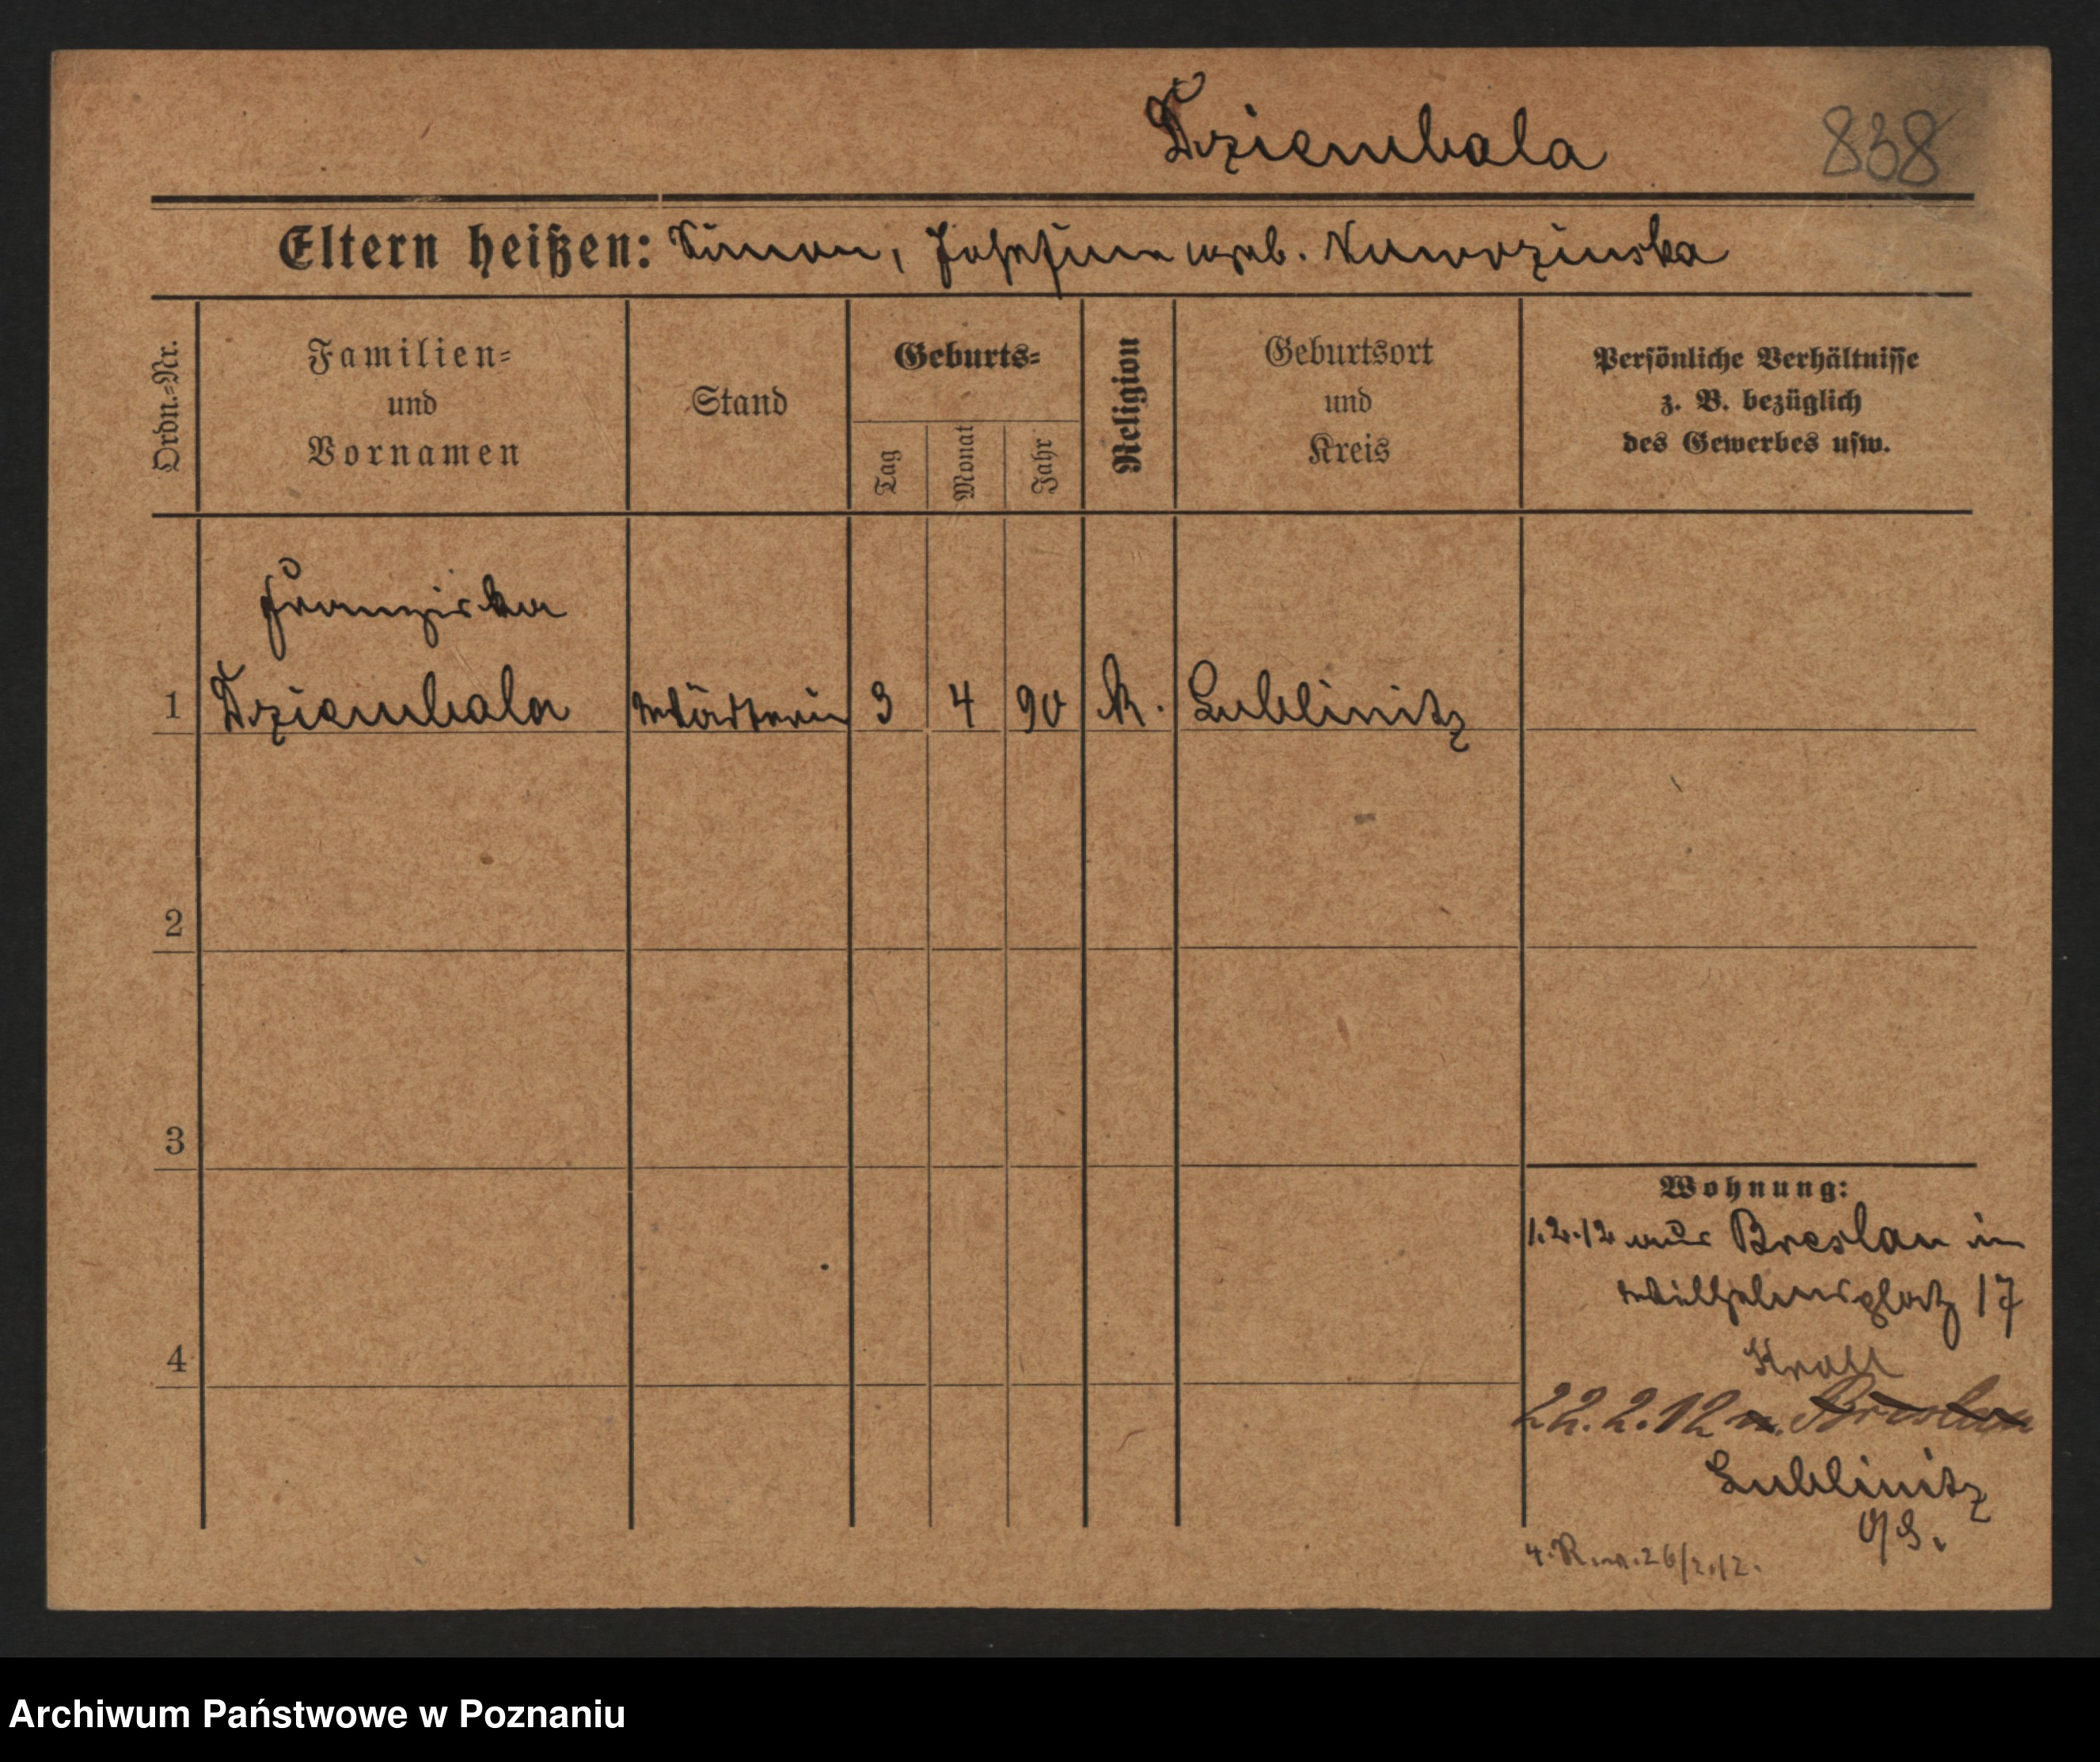 Dziembala
838
Eltern heißen: Simon, Josefine geb. Naworzinska
Ordn.-Nr.
Familien-
und
Vornamen
Stand
Geburts-
Tag
Monat
Jahr
Religion
Geburtsort
und
Kreis
Persönliche Verhältnisse
z. B. bezüglich
des Gewerbes usw.
Franziska
1 Dziembala Wärterin 3 4 90 K. Lublinitz
2
3
4
Wohnung:
1.2.12 aus Breslau in
Wilhelmsplatz 17
Kroll
22.2.12 n. Breslau
Lublinitz
O/S.
26/2.12.
Archiwum Państwowe w Poznaniu